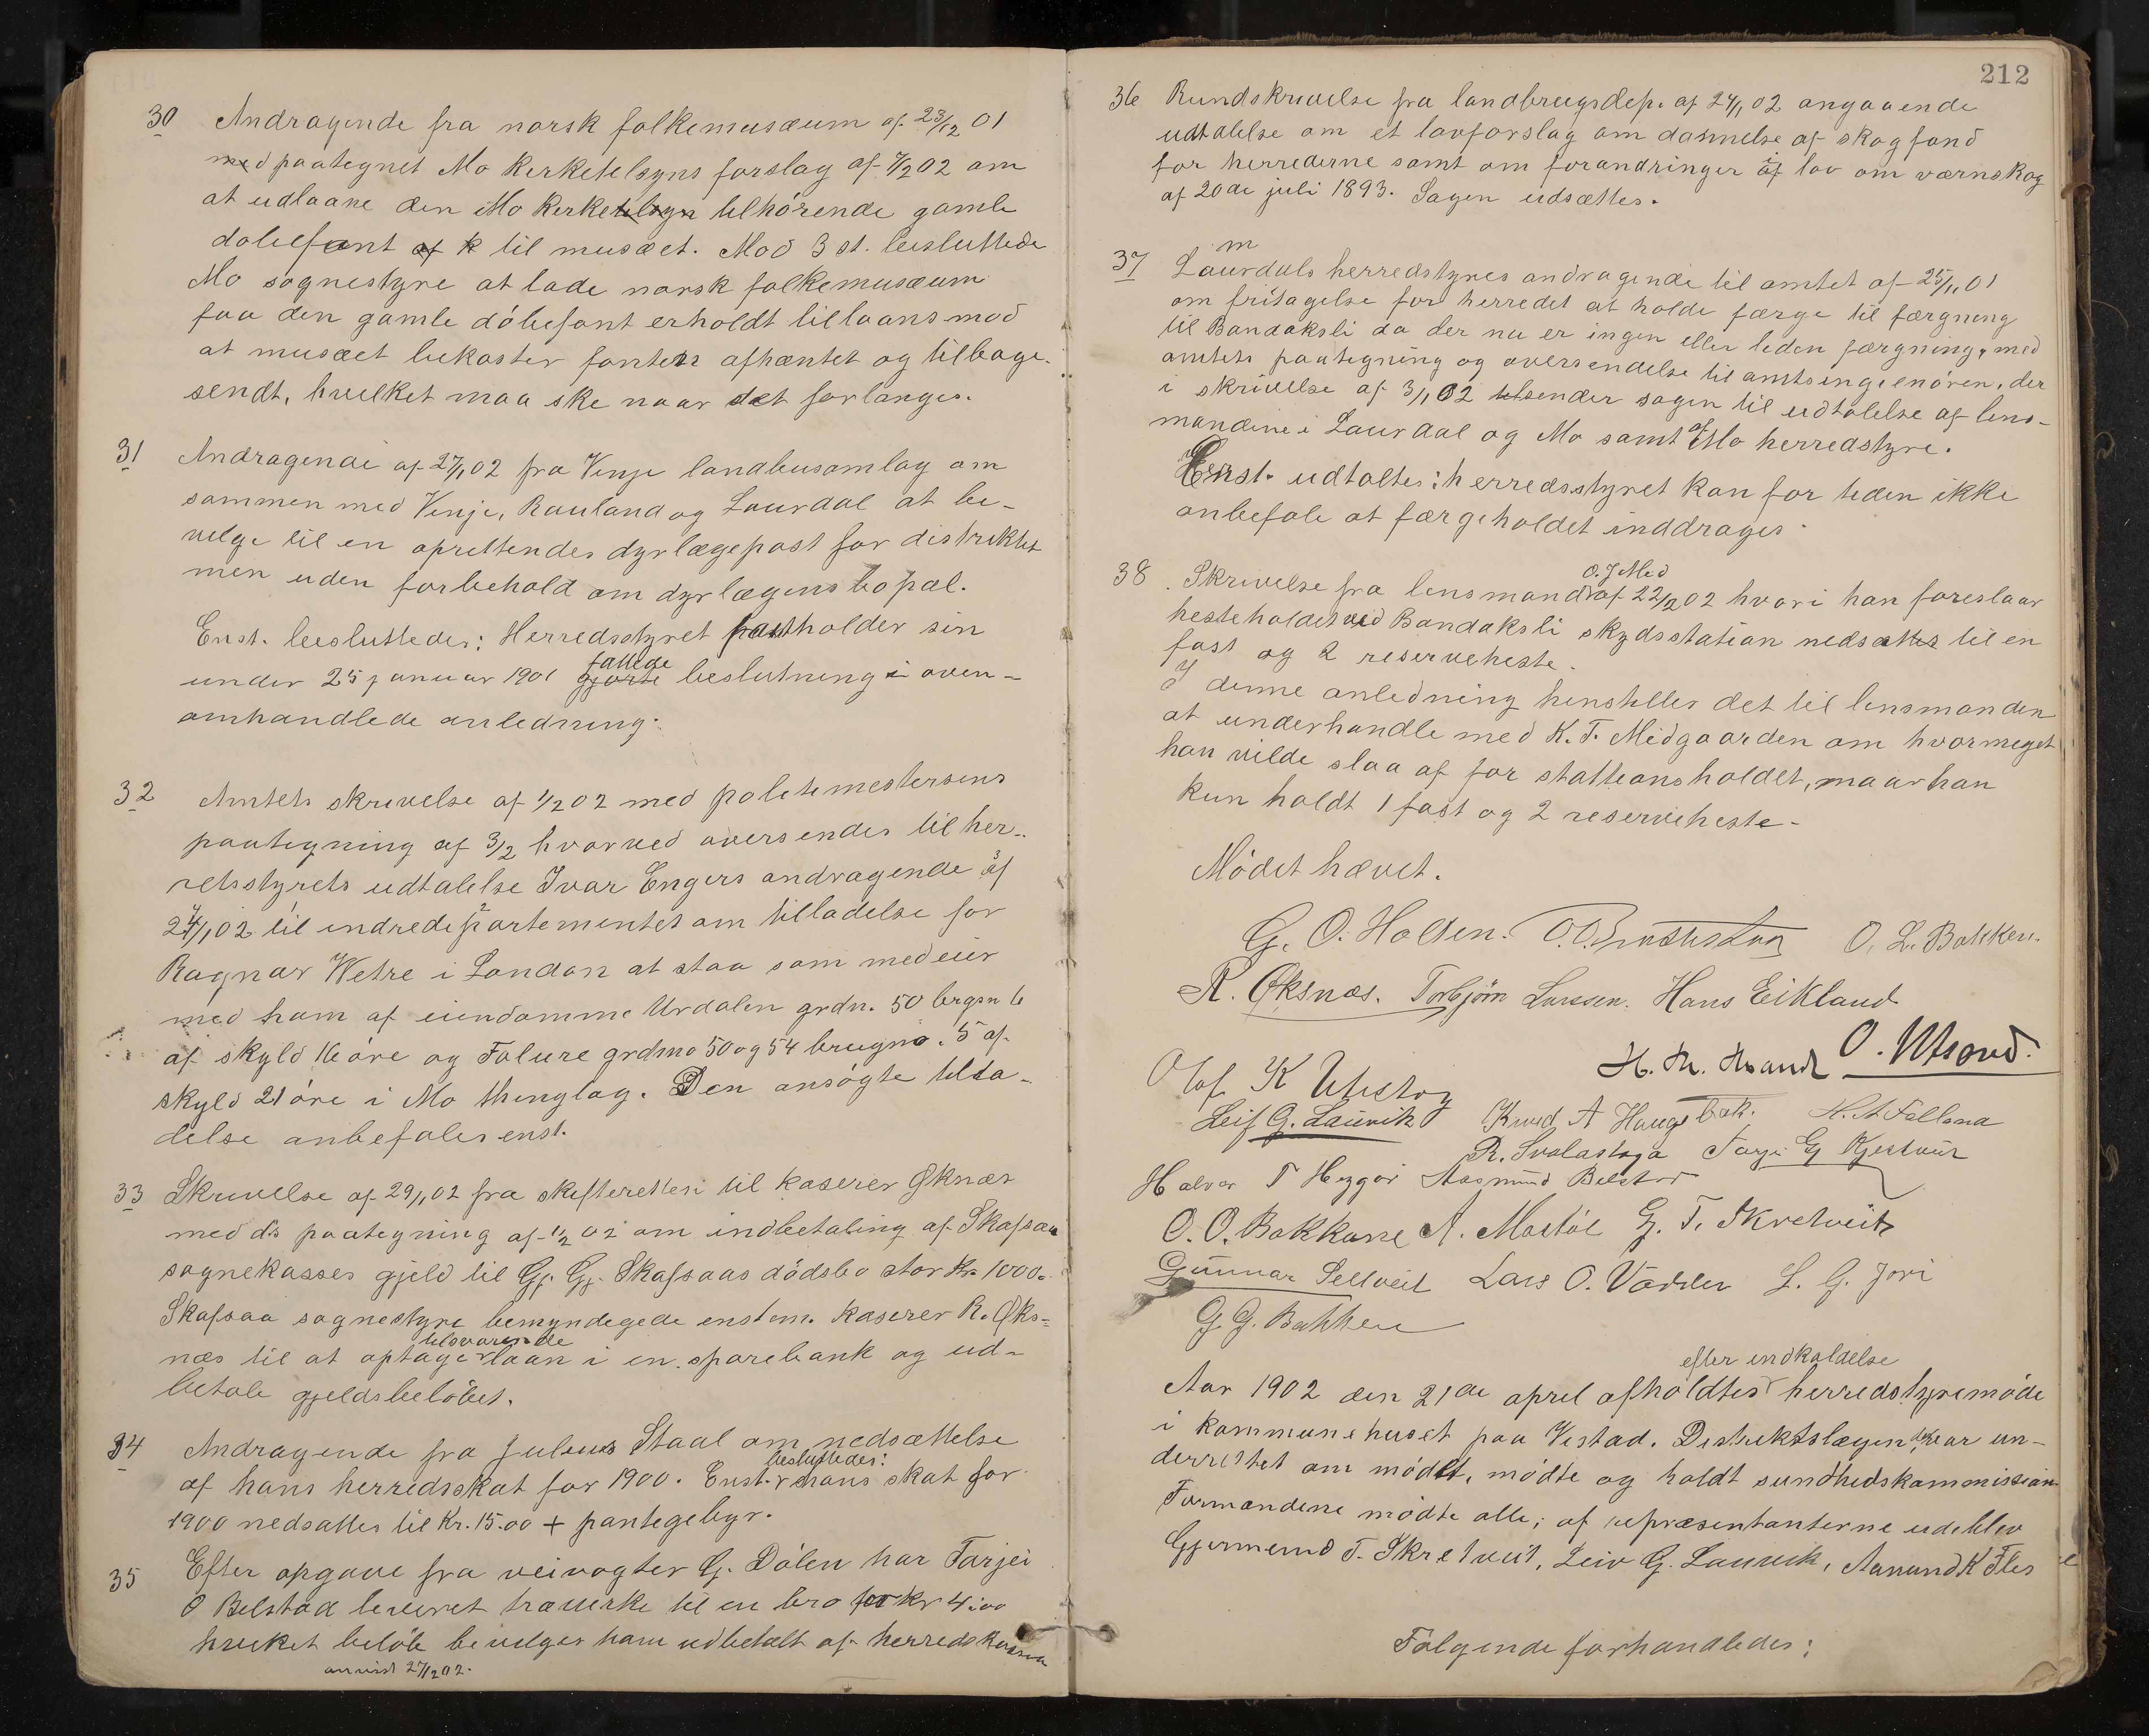 30 Andragende fra norsk folkemusæum af 23/12 01
med paategnet Mo Kirketilsyns forslag af 7/2 02 om
at udlaane den Mo Kirke tilhörende gamle
döbefont til musæet. Mod 3 st. besluttede
Mo sognestyre at lade norsk folkemusæum
faa den gamle döbefont erholdt til laans mod
at musæet bekoster fonten afhæntet og tilbage-
sendt, hvilket maa ske naar det forlanges.
31 Andragende af 27/1 02 fra Vinje landbusamlag om
sammen med Vinje, Rauland og Laurdal at be-
vilge til en oprettendes dyrlægepost for distriktet
men uden forbehold om dyrlægens bopæl.
Enst. besluttedes: Herredsstyret fastholder sin
fattede
under 25 januar 1901 gjorte beslutning i oven-
omhandlede anledning.
32 Amtets skrivelse af 1/2 02 med politimestersens
paategning af 3/2 hvorved oversendes til her-
redsstyrets udtalelse Ivar Engers andragende af
24/1 02 til indredepartementet om tilladelse for
Ragnar Wetre i London at staa som medeier
med ham af eiendomme Urdalen grdn. 50 brgsn 6
af skyld 16 öre og Folure grdsno 50 og 54 brugno. 5 af
skyld 21 öre i Mo thinglag. Den ansögte tilla-
delse anbefales enst.
33 Skrivelse af 29/1 02 fra skifteretten til kaserer Øksnæs
med ds paategning af 1/2 02 om indbetaling af Skafsaa
sognekasses gjeld til Gj. Gj. Skafsaas dödsbo stor Kr. 1000.
Skafsaa sognestyre bemyndegede enstem. kaserer R. Øks-
tilsvarende
næs til at optage laan i en sparebank og ud-
betale gjeldsbelöbet.
34 Andragende fra Julius Staal om nedsættelse
besluttedes:
af hans herredsskat for 1900. Enst. hans skat for
1900 nedsattes til Kr. 15.00 + pantegebyr.
35 Efter opgave fra veivogter G. Dölen har Tarjei
O Belstad leveret trævirke til en bro for kr 4.00
hvilket belöb bevilges ham udbetalt af herredskassen
anvist 27/2 02.
212
36 Rundskrivelse fra landbrugsdep. af 24/1 02 angaaende
udtalelse om et lovforslag om dannelse af skogfond
for herrederne samt om forandringer i lov om værnskog
af 20de juli 1893. Sagen udsættes.
m
37 Laurdals herredstyres andragende til amtet af 25/11 01
om fritagelse for herredet at holde færge til færgning
til Bandaksli da der nu er ingen eller liden færgning, med
amtets paategning og oversendelse til amtsingeniören, der
i skrivelse af 3/1 02 tilsender sagen til udtalelse af lens-
mændene i Laurdal og Mo samt af Mo herredstyre.
Enst. udtaltes: herredsstyret kan for tiden ikke
anbefale at færgeholdet inddrages.
O. J Mo
38 Skrivelse fra lensmand af 22/2 02 hvori han foreslaar
hesteholdet ved Bandaksli skydsstation nedsættes til en
fast og 2 reserveheste.
I denne anledning henstilles det til lensmanden
at underhandle med K. T. Midgaarden om hvormeget
han vilde slaa af for stattionsholdet, naar han
kun holdt 1 fast og 2 reserveheste.
Mödet hævet.
G. O. Holten. O. L. Bakken.
R. Øksnæs. Torbjörn Larssen. Hans Eikland
H. Th. Strand
Olaf K
Leif G. Laurik Knud A Haugebak.
R. Svalastoga Tarjei G
Halvor T Heggör Aasmund Belstad
O. O. Bakkane A. Mostöl G. T. Skretveit
Gunnar Sellveit Lars O. Vadder L. G. Jori
G. G. Bakken
efter indkaldelse
Aar 1902 den 21de april afholdtes herredstyremöde
i kommunehuset paa Vistad. Distriktslægen var un-
derrettet om mödet, mödte og holdt sundhedskommission.
Formændene mödte alle; af repræsentanterne udeblev
Gjermund T. Skretveit, Leiv G. Laurik, Aanund K Fles
Fölgende forhandledes: